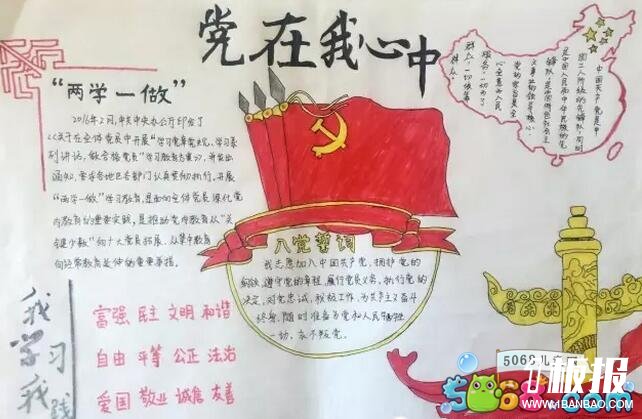 党在我心中
"两学一做"
2016年2月,中共中央办公厅印发了
《关于在全体党员中开展"学习党章党规、学习系
列讲话,做合格党员"学习教育方案》,并发出
通知,要求各地区各部门认真贯彻执行。开展
"两学一做"学习教育,是面向全体党员深化党
内教育的重要实践,是推动党内教育从"关
键少数"向广大党员拓展、从集中教育
向经常教育延伸的重要举措。
中国共产党是中
国工人阶级的先锋队,同时
是中国人民和中华民族的先
锋队,是中国特色社会主
义事业的领导核心,
党的宗旨是全
心全意为人民
服务,一切为了
群众,一切依靠
群众
入党誓词
我志愿加入中国共产党,拥护党的
纲领,遵守党的章程,履行党员义务,执行党的
决定,
对党忠诚,积极工作,为共产主义奋斗
终身,随时准备为党和人民牺牲
一切,永不叛党。
我学习我践
富强 民主 文明 和谐
自由 平等 公正 法治
爱国 敬业 诚信 友善
5068儿童
5068.com
板报
WWW.1BANBAO.COM